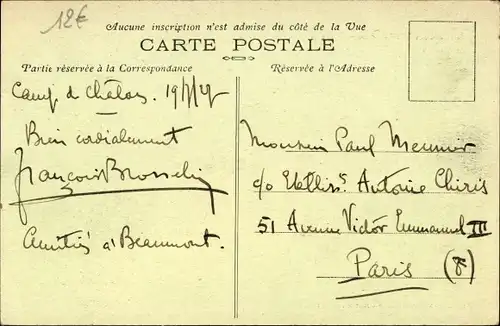 12€
Aucune inscription n'est admise du côté de la Vue
CARTE POSTALE
Partie réservée à la Correspondance
Réservée à l'Adresse
Camp de Châlons.
Bien cordialement
François
Amitiés à Beaumont.
Monsieur Paul Meunier
c/o Etabliss.ts Antoine Chiris
51 Avenue Victor Emmanuel III
Paris (8)